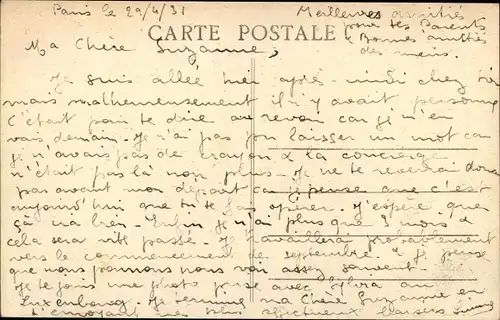 Paris le 29/4/31
Meilleures amitiés
pour tes Parents
& Bonnes amitiés
des miens.
CARTE POSTALE
Ma Chère Suzanne,
Je suis allée hier après-midi chez toi
mais malheureusement il n'y avait personne
C'était pour te dire au revoir car je m'en
vais demain. Je n'ai pas pu laisser un mot car
je n'avais pas de crayon & la concierge
n'était pas là non plus. Je ne te reverrai donc
pas avant mon départ car je pense que c'est
aujourd'hui que tu te fais opérer. J'espère que
çà ira bien. Enfin je n'ai plus que 3 mois &
cela sera vite passé. Je travaillerai probablement
vers le commencement de septembre & je pense
que nous pourrons nous voir assez souvent.
Je te joins une photo prise avec au
Luxembourg. Je termine ma Chère Suzanne en
t'envoyant mes plus affectueux baisers